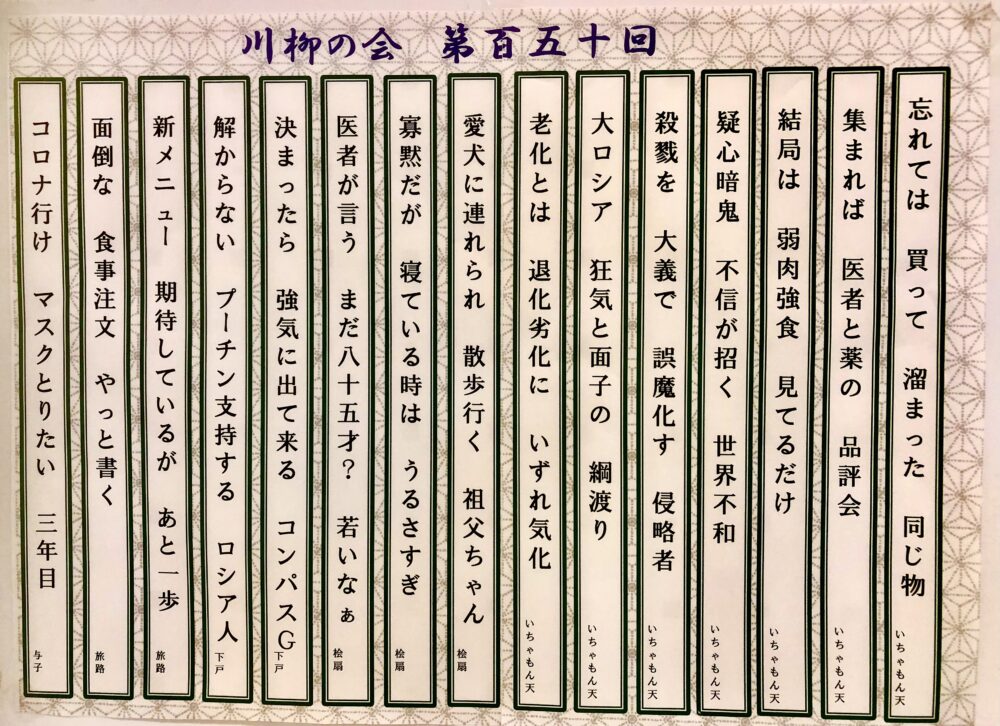 川柳の会　第百五十回
忘れては　買って　溜まった　同じ物　いちゃもん天
集まれば　医者と薬の　品評会　いちゃもん天
結局は　弱肉強食　見てるだけ　いちゃもん天
疑心暗鬼　不信が招く　世界不和　いちゃもん天
殺戮を　大義で　誤魔化す　侵略者　いちゃもん天
大ロシア　狂気と面子の　綱渡り　いちゃもん天
老化とは　退化劣化に　いずれ気化　いちゃもん天
愛犬に連れられ　散歩行く　祖父ちゃん　桧扇
寡黙だが　寝ている時は　うるさすぎ　桧扇
医者が言う　まだ八十五才？　若いなぁ　桧扇
決まったら　強気に出て来る　コンパスＧ　下戸
解からない　プーチン支持する　ロシア人　下戸
新メニュー　期待しているが　あと一歩　旅路
面倒な　食事注文　やっと書く　旅路
コロナ行け　マスクとりたい　三年目　与子